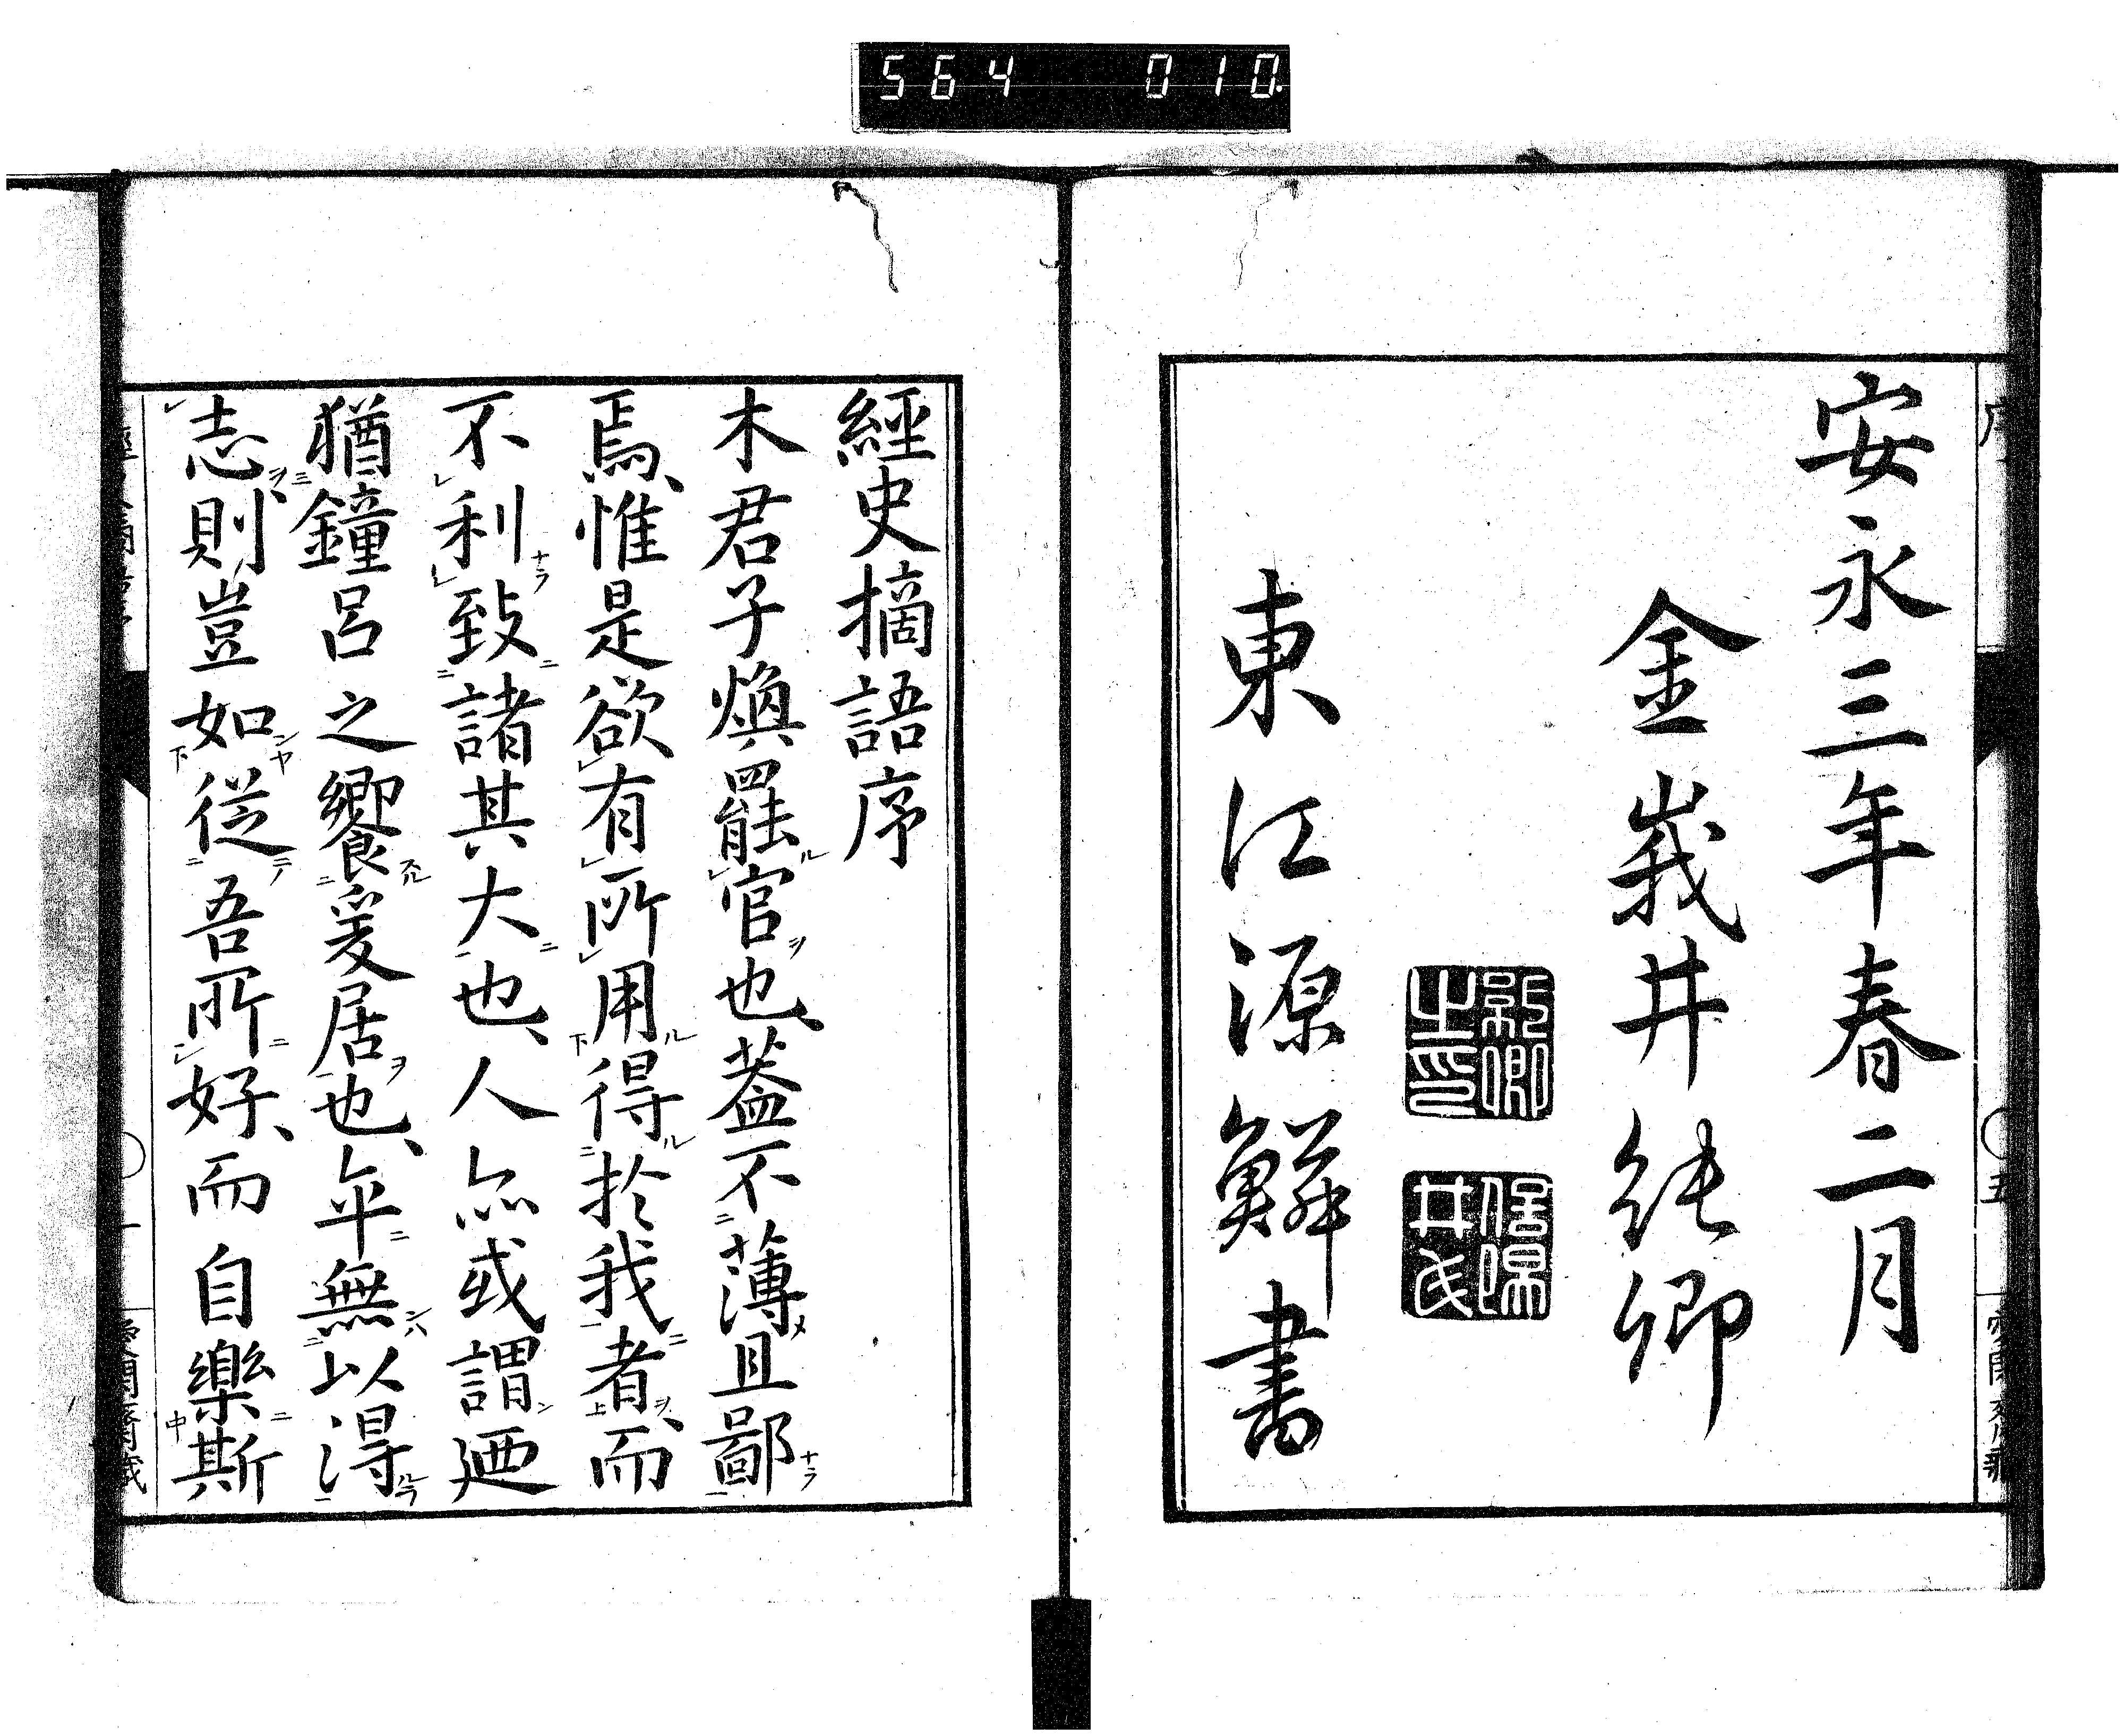 564 010
安永三年春二月
金峩井純卿
純卿之印
井氏
東江源鱗書
經史摘語序
木君子煥罷官也、蓋不薄且鄙
焉、惟是欲有所用得於我者、而
不利致諸其大也、人亦或謂迺
猶鐘呂之饗爰居也、卒無以得
志、則豈如從吾所好、而自樂斯